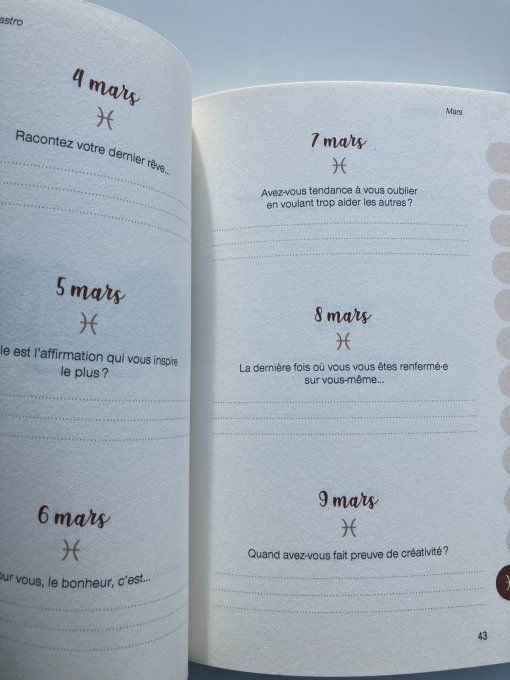 astro
4 mars
♓
Racontez votre dernier rêve...
5 mars
♓
est l'affirmation qui vous inspire
le plus ?
6 mars
♓
vous, le bonheur, c'est...
Mars
7 mars
♓
Avez-vous tendance à vous oublier
en voulant trop aider les autres ?
8 mars
♓
La dernière fois où vous vous êtes renfermé·e
sur vous-même...
9 mars
♓
Quand avez-vous fait preuve de créativité ?
43